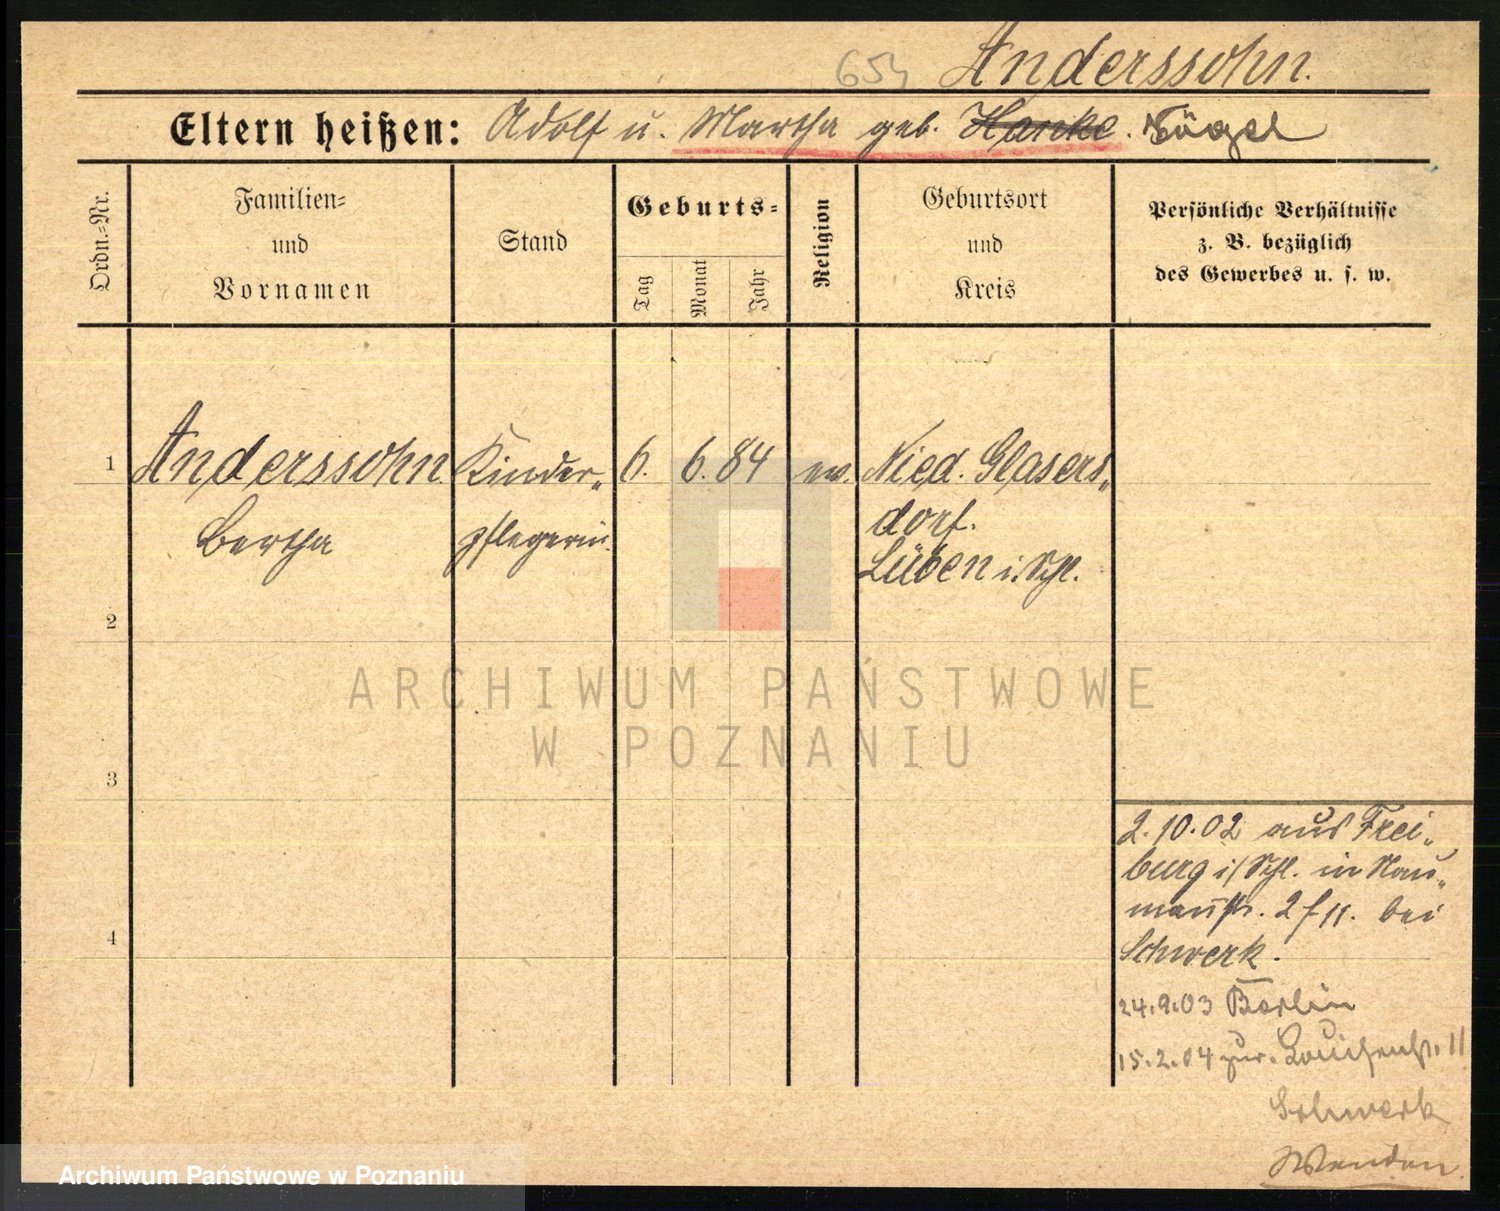 Anderssohn.
Eltern heißen: Adolf u. Martha geb. Hanke. Vögel
Ordn.-Nr.
Familien-
und
Vornamen
Stand
Geburts-
Tag
Monat
Jahr
Religion
Geburtsort
und
Kreis
Persönliche Verhältnisse
z. B. bezüglich
des Gewerbes u. s. w.
1 Anderssohn Kinder- 6. 6. 84 ev. Nied. Glasers-
Bertha pflegerin. dorf.
Lüben i. Schl.
2
ARCHIWUM PAŃSTWOWE
W POZNANIU
3
2.10.02 aus Frei-
burg i/Schl. in Nau-
mannstr. 2 f 11. bei
4
Schwerk.
24.9.03 Berlin
15.2.04 zur. Louisenstr. 11
Schwerk
Archiwum Państwowe w Poznaniu